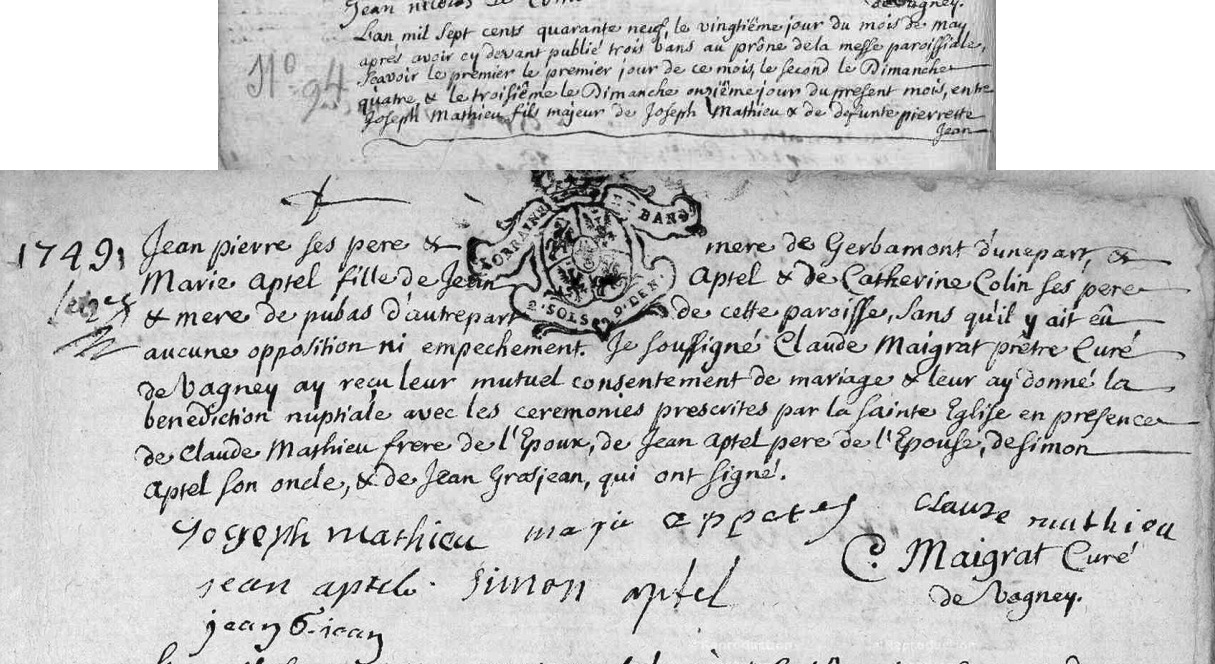 Jean nicolas
de Vagney.
Lan mil sept cents quarante neuf, le vingtiéme jour du mois de may
aprés avoir cy devant publié trois bans au prône dela messe paroissiale,
Sçavoir le premier le premier jour de ce mois, le second le Dimanche
N.o 94.
quatre, & le troisiême le Dimanche onziême jour du present mois, entre
Joseph Mathieu fils majeur de Joseph Mathieu & de defunte pierrette
Jean
LORRAINE ET BAR
1749,
Jean pierre ses pere & mere de Gerbamont d'une part, &
Marie Aptel fille de Jean Aptel & de Catherine Colin ses pere
2. SOLS 9. DEN.
& mere de pubas d'autrepart de cette paroisse, sans qu'il y ait eû
aucune opposition ni empechement. Je soussigné Claude Maigrat prêtre Curé
de Vagney ay reçu leur mutuel consentement de mariage & leur ay donné la
benediction nuptiale avec les ceremonies prescrites par la sainte Eglise en presence
de Claude Mathieu frere de l'Epoux, de Jean Aptel pere de l'Epouse, de simon
Aptel son oncle, & de Jean Grosjean, qui ont signé.
Joseph mathieu claude mathieu
C. Maigrat Curé
jean aptel simon aptel
de Vagney.
jean G-jean